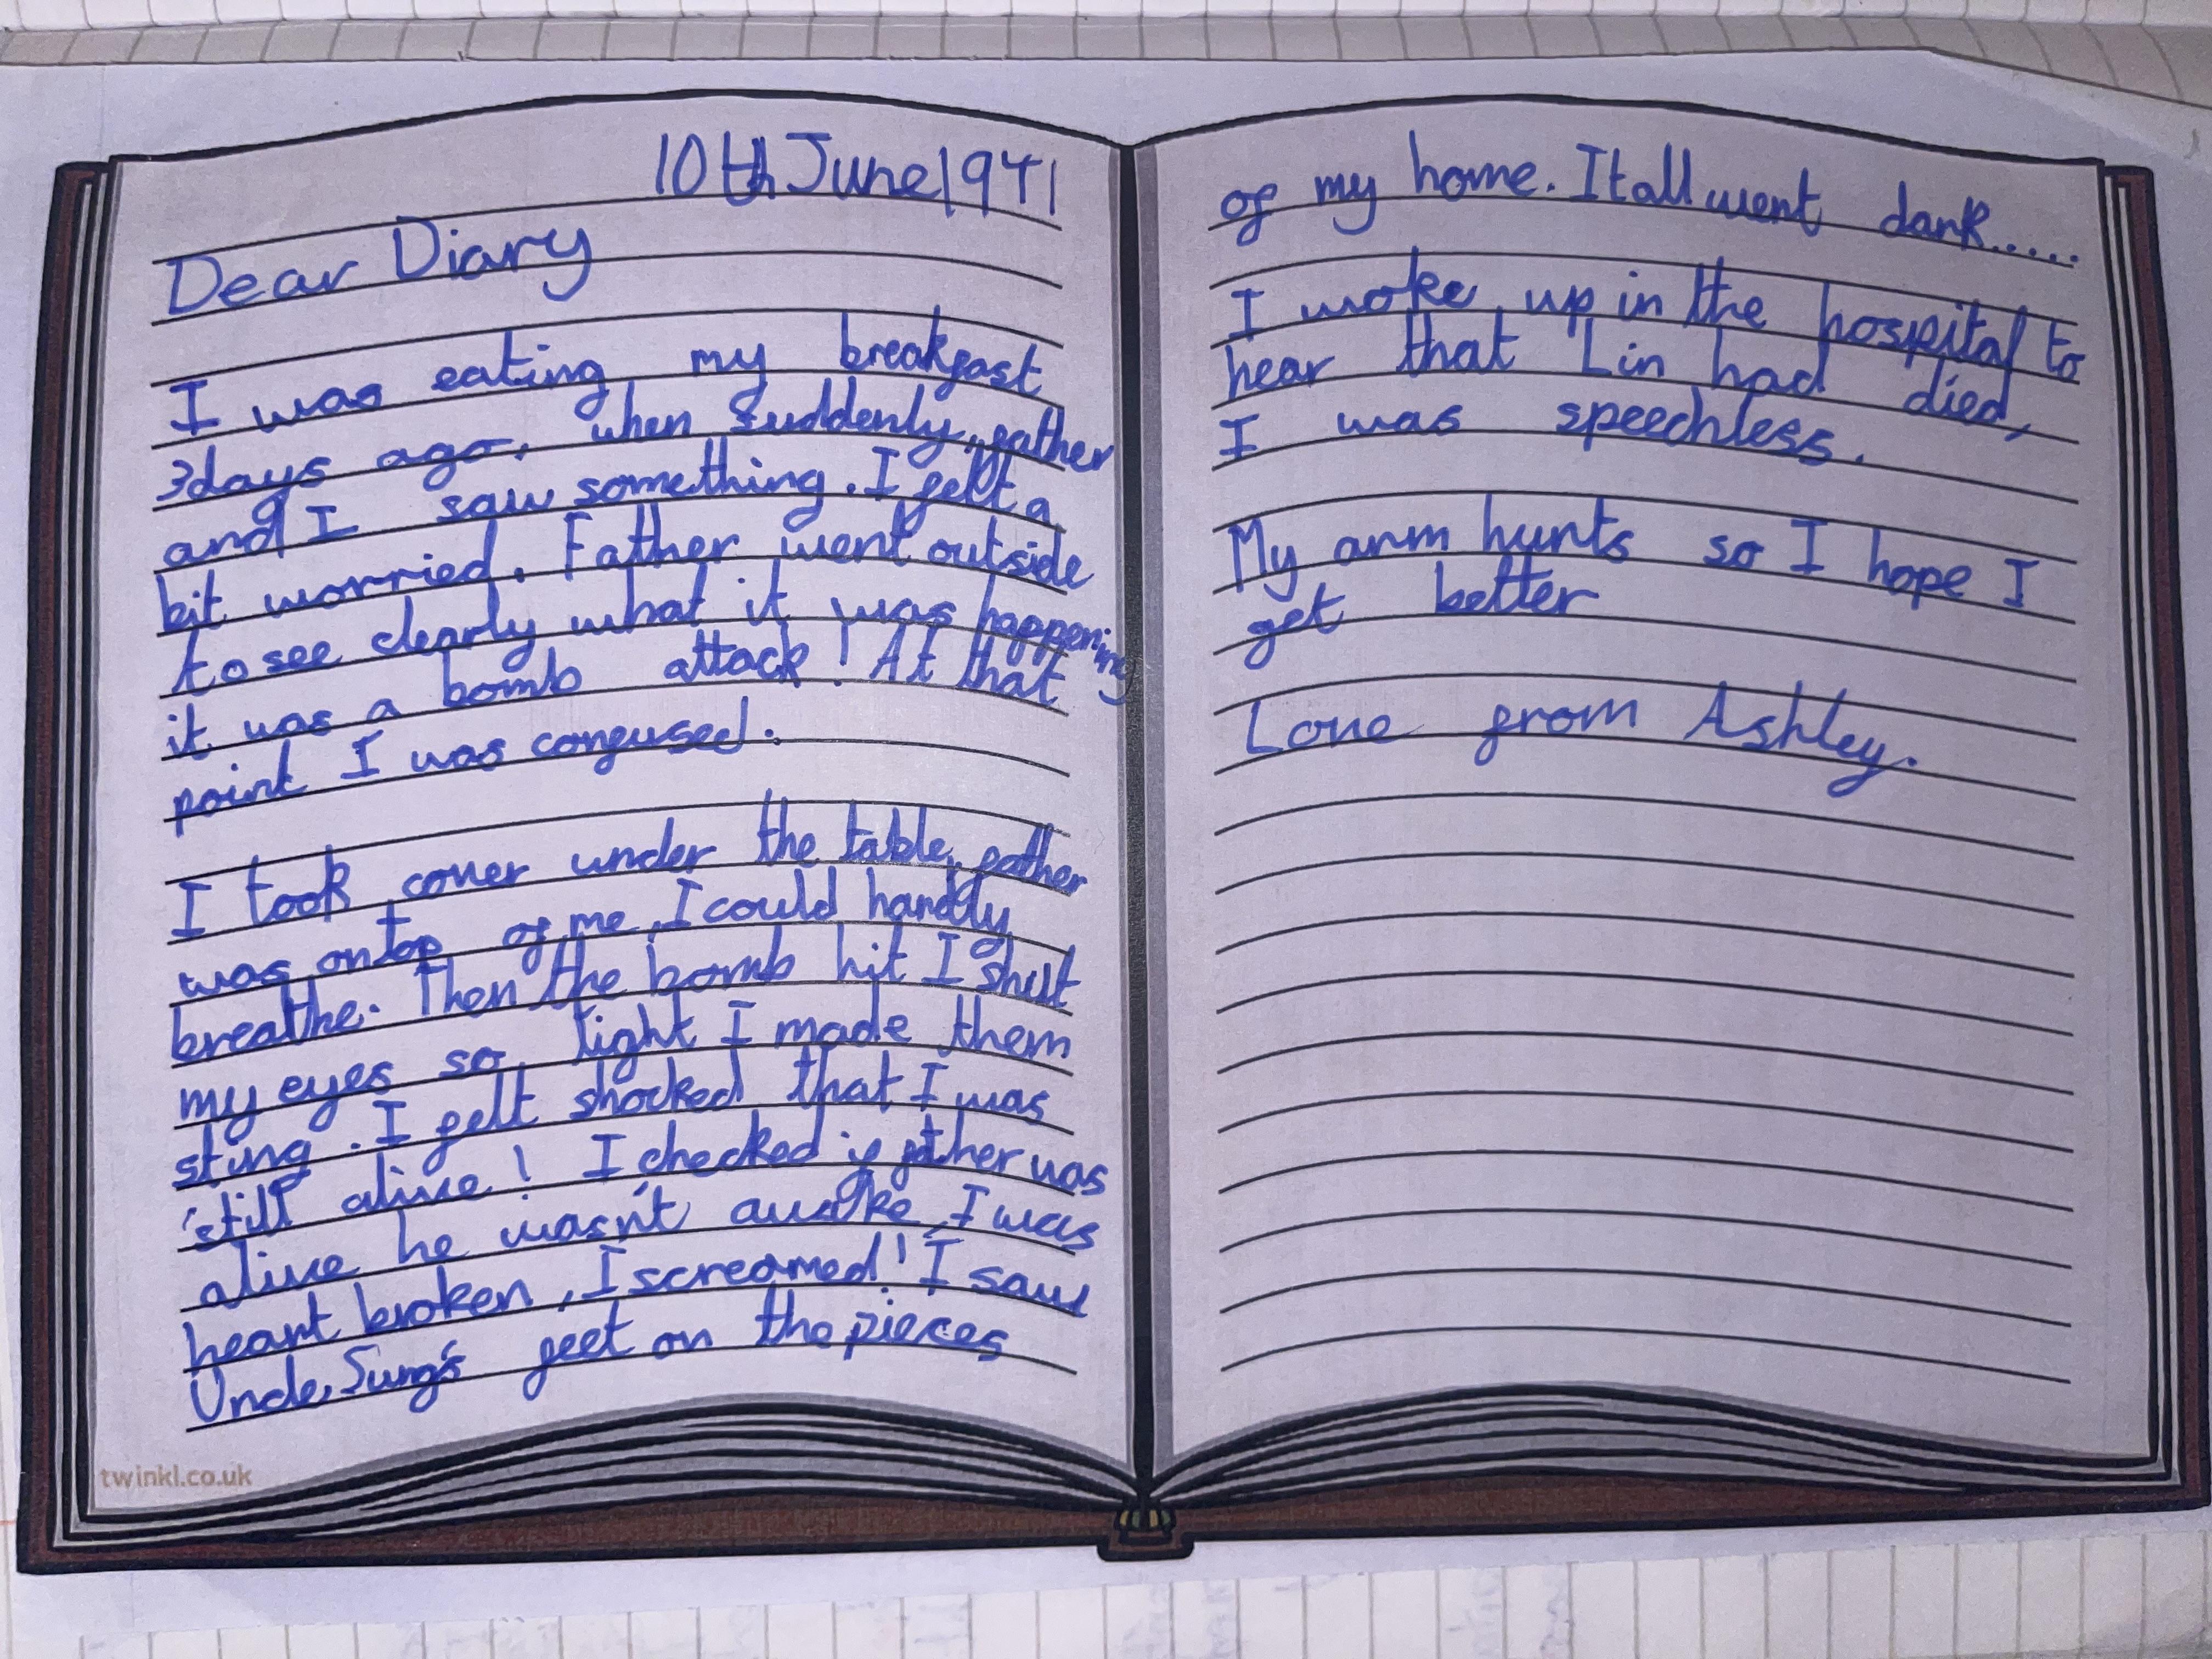 10th June 1941
Dear Diary
I was eating my breakfast
3days ago, when suddenly, father
and I saw something. I felt a
bit worried. Father went outside
to see clearly what it was happening
it was a bomb attack! At that
point I was confused.
I took cover under the table, father
was on top of me, I could hardly
breathe. Then the bomb hit I shut
my eyes so tight I made them
sting. I felt shocked that I was
still alive! I checked if father was
alive he wasn't awake, I was
heart broken, I screamed! I saw
Uncle, Sung's feet on the pieces
of my home. It all went dark.....
I woke up in the hospital to
hear that Lin had died,
I was speechless.
My arm hurts so I hope I
get better
Love from Ashley.
twinkl.co.uk